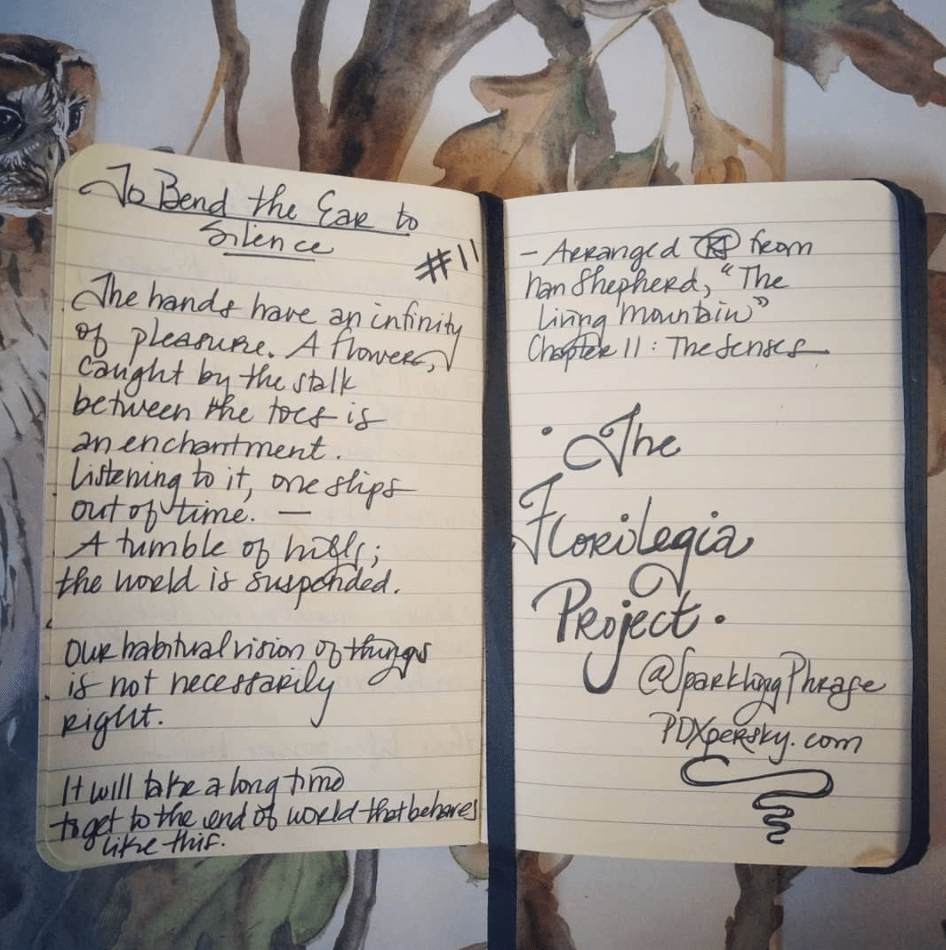 To Bend the Ear to
Silence
#11
The hands have an infinity
of pleasure. A flower,
caught by the stalk
between the toes is
an enchantment.
Listening to it, one slips
out of time. —
A tumble of hills;
the world is suspended.
Our habitual vision of things
is not necessarily
right.
It will take a long time
to get to the end of world that behaves
like this.
- Arranged from
Nan Shepherd, "The
Living Mountain"
Chapter 11: The Senses
• The
Florilegia
Project •
@SparklingPhrase
PDXpersky.com